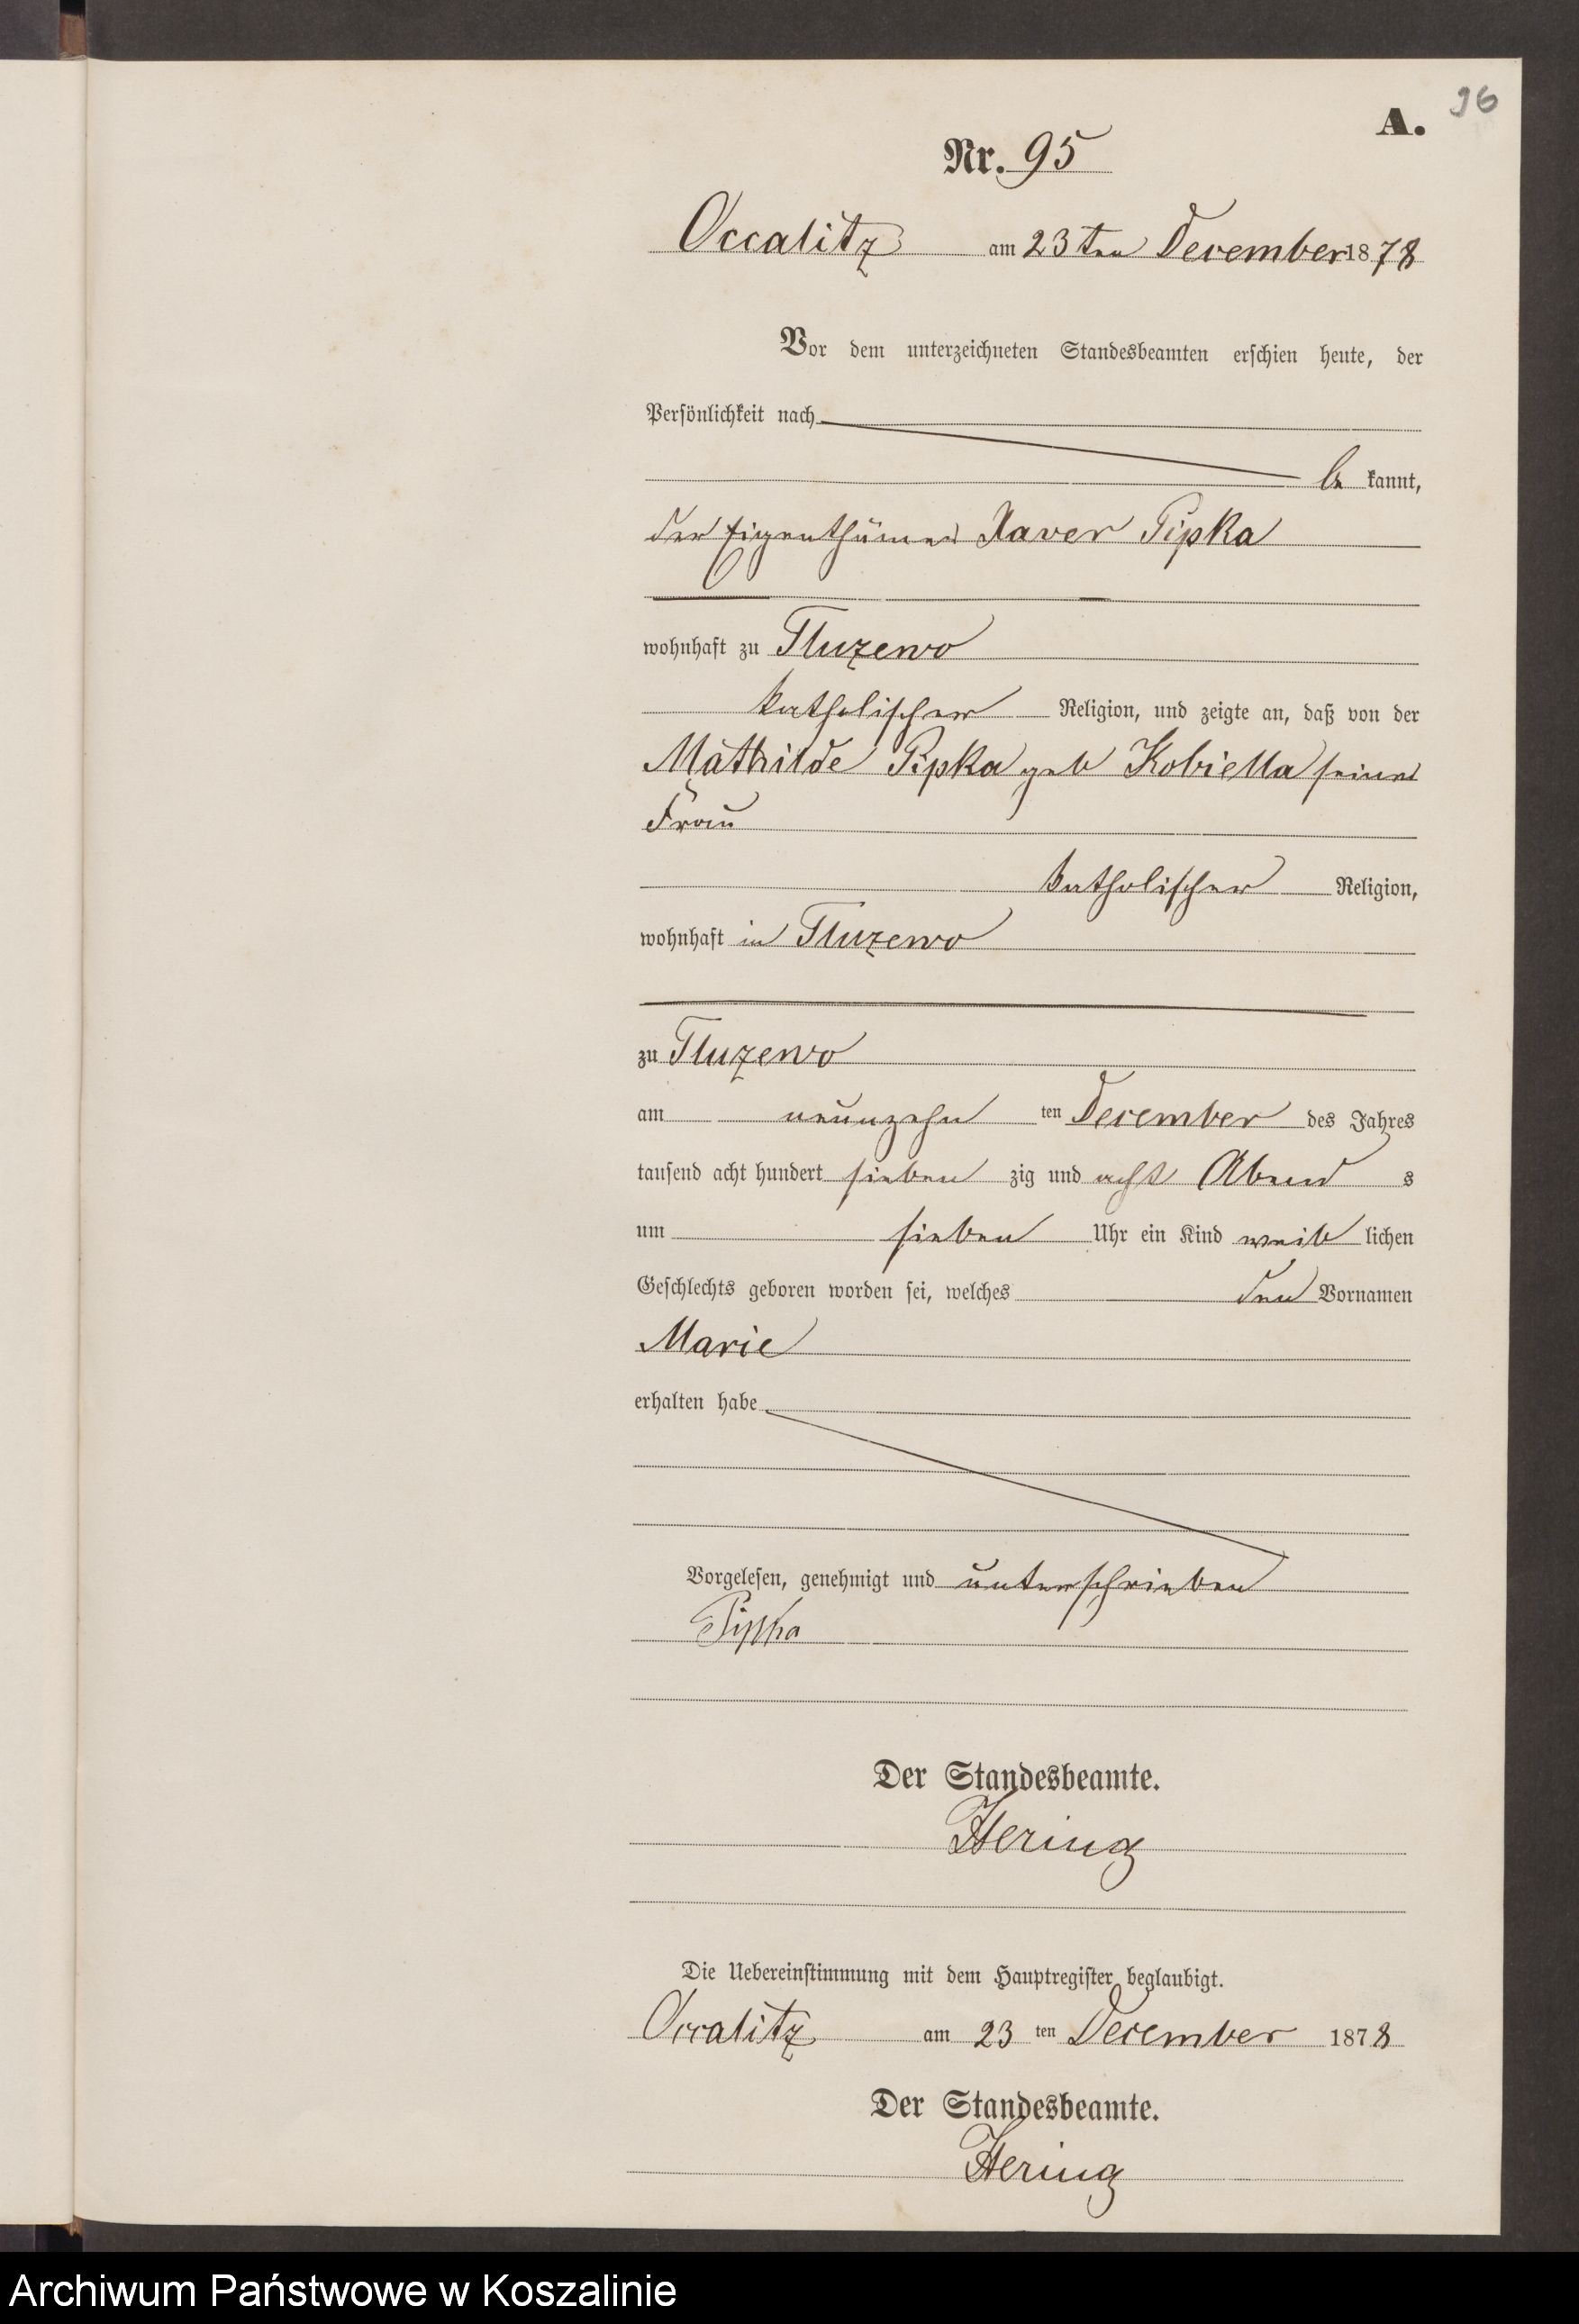 96
A.
Nr. 95
Occalitz am 23ten December 1878
Vor dem unterzeichneten Standesbeamten erschien heute, der
Persönlichkeit nach
be kannt,
der Eigenthümer Xaver Pipka
wohnhaft zu Tluzewo
katholischer Religion, und zeigte an, daß von der
Mathilde Pipka geb Kobiella seiner
Frau
katholischer Religion,
wohnhaft in Tluzewo
zu Tluzewo
am neunzehn ten December des Jahres
tausend acht hundert sieben zig und acht Abend s
um sieben Uhr ein Kind weib lichen
Geschlechts geboren worden sei, welches den Vornamen
Marie
erhalten habe
Vorgelesen, genehmigt und unterschrieben
Pipka
Der Standesbeamte.
Hering
Die Uebereinstimmung mit dem Hauptregister beglaubigt.
Occalitz am 23 ten December 1878
Der Standesbeamte.
Hering
Archiwum Państwowe w Koszalinie